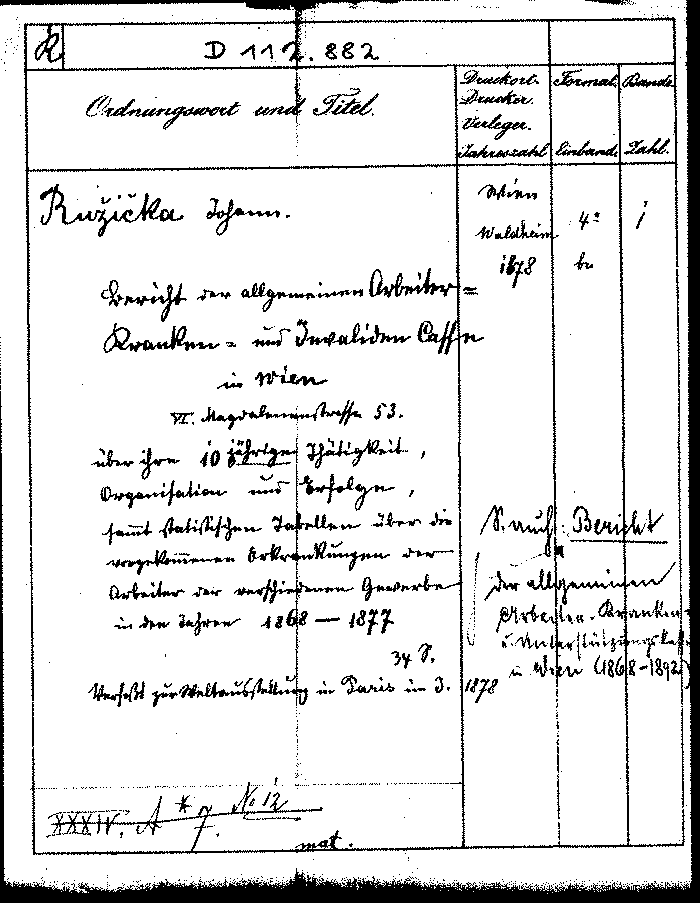 R
D 112.882
Ordnungswort und Titel.
Druckort.
Drucker.
Verleger.
Jahreszahl
Format.
Einband.
Bände
Zahl.
Ružička Johann.
Wien
Waldheim
1878
4°
br
1
Bericht der allgemeinen Arbeiter=
Kranken= und Invaliden Casse
in Wien
VI. Magdalenenstrasse 53.
über ihre 10 jährige Thätigkeit,
Organisation und Erfolge,
sammt statistischen Tabellen über die
vorgekommenen Erkrankungen der
Arbeiter der verschiedenen Gewerbe
in den Jahren 1868 — 1877
34 S.
Verfasst zur Weltausstellung in Paris im J. 1878
S. auch: Bericht
der allgemeinen
Arbeiter-Kranken-
u. Unterstützungskasse
in Wien (1868-1892)
XXXIV. A * 7. No 12
mat.